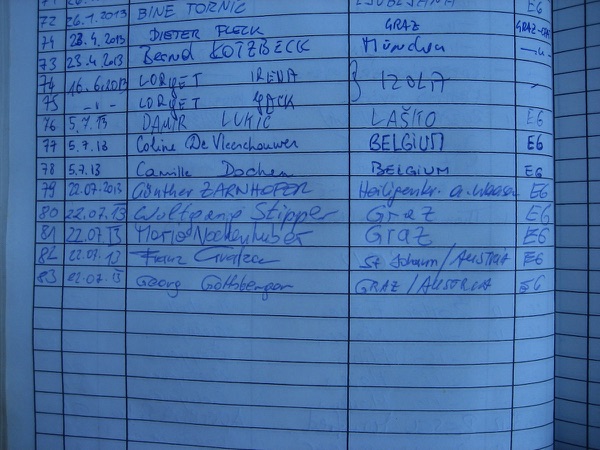 72 26.1.2013 BINE TORNIČ LJUBLJANA E6
71 28.4.2013 DIETER FLECK GRAZ GRAZ
73 23.4.2013 Bernd KOTZBECK München — " —
74 16.6.2013 LORGET IRENA } IZOLA
75 - " - LORGET
76 5.7.13 DAMIR LUKIČ LAŠKO E6
77 5.7.13 Coline De Vleeschouwer BELGIUM E6
78 5.7.13 Camille Dochen BELGIUM E6
79 22.07.2013 Günther ZARNHOFER Heiligenkr. a. Waasen E6
80 22.07.13 Wolfgang Stipper Graz E6
81 22.07.13 Mario Nachenhuber Graz E6
82 22.07.13 Franz St Johann/AUSTRIA E6
83 22.07.13 Georg Göttsberger GRAZ/AUSTRIA E6